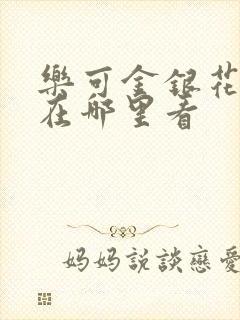 樂可金銀花
在哪里看
妈妈説談戀愛